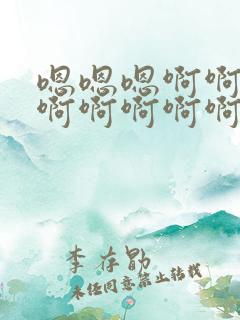 嗯嗯嗯啊啊
啊啊啊啊啊
李存勖
未经同意禁止转载